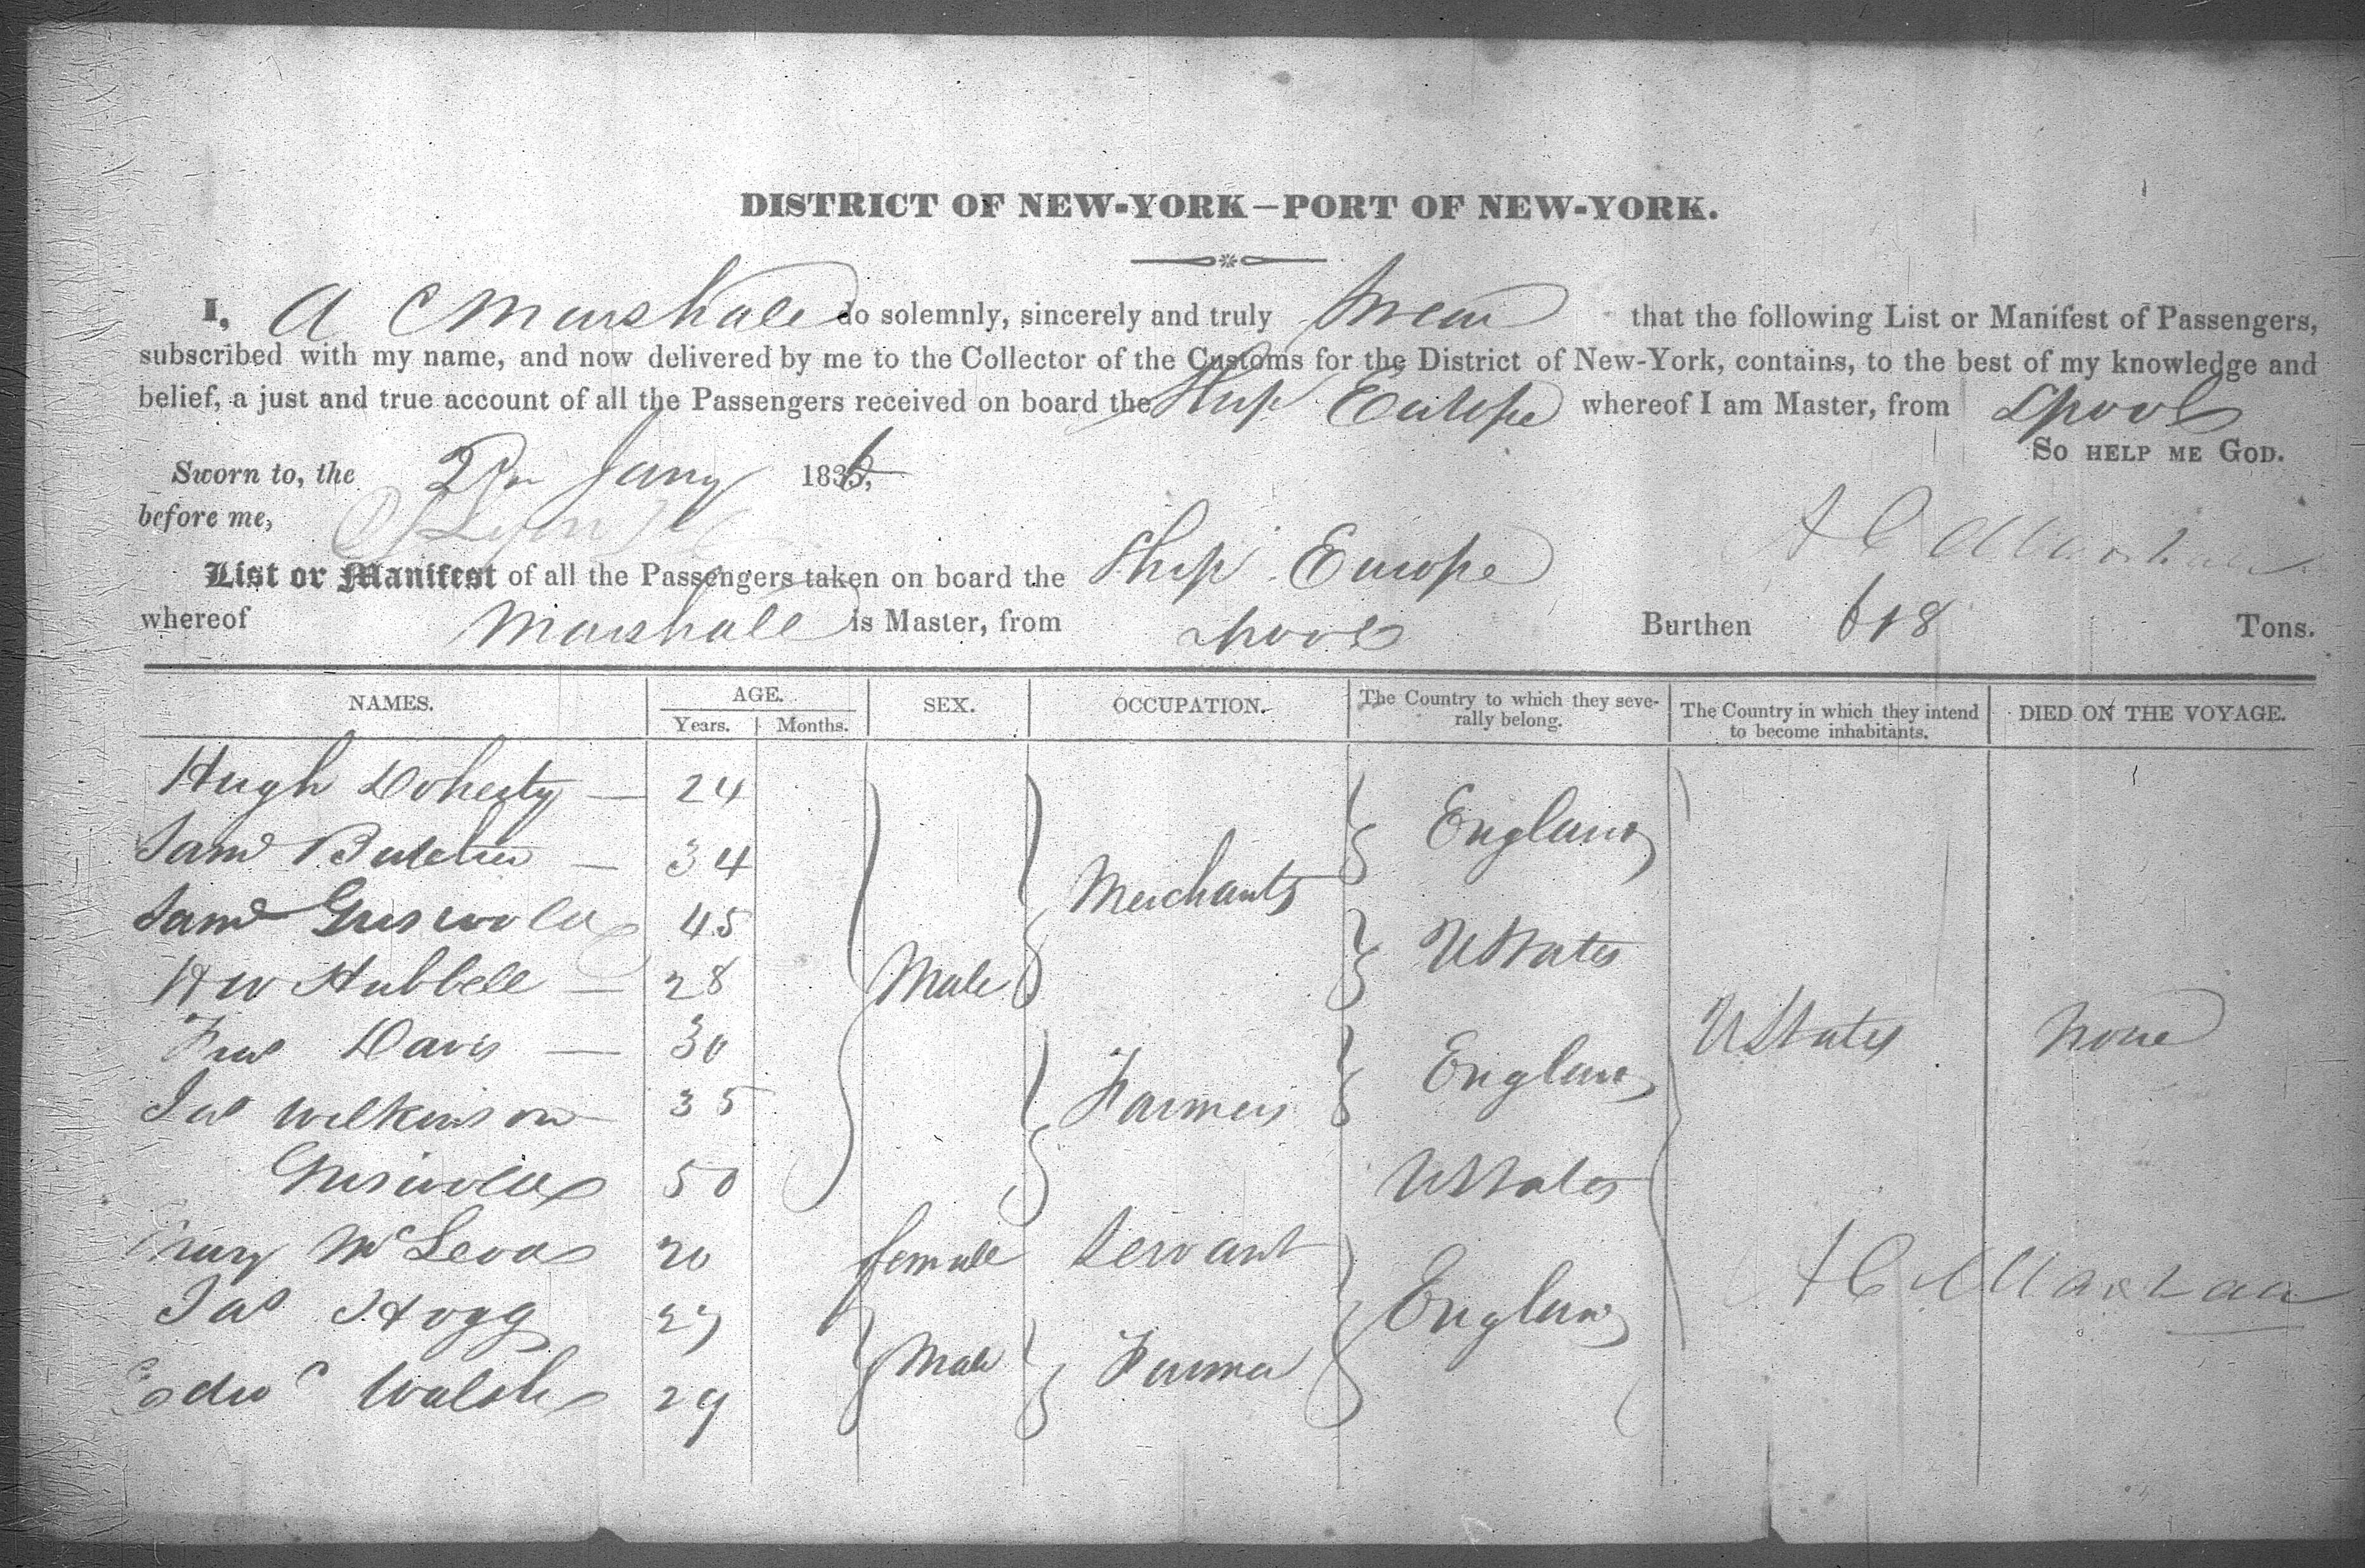 DISTRICT OF NEW-YORK—PORT OF NEW-YORK.
I, A C Marshall do solemnly, sincerely and truly Swear that the following List or Manifest of Passengers,
subscribed with my name, and now delivered by me to the Collector of the Customs for the District of New-York, contains, to the best of my knowledge and
belief, a just and true account of all the Passengers received on board the Ship Europe whereof I am Master, from Lpool
So HELP ME GOD.
Sworn to, the Jany 1836
before me,
A C Marshall
List or Manifest of all the Passengers taken on board the Ship Europe
whereof Marshall is Master, from Lpool Burthen 618 Tons.
NAMES. AGE. Years. Months. SEX. OCCUPATION. The Country to which they severally belong. The Country in which they intend to become inhabitants. DIED ON THE VOYAGE.
Hugh Doherty — 24
England
Saml Butcher — 34
Merchants
Saml Griswold 45
U States
H W Hubbell — 28
Male
Davis — 30
U States None
England
Jas Wilkinson 35
Farmers
Griswold 50 U States
McLeod 20 female Servant
England A C Marshall
Jas Hogg 27
Male Farmer
Edwd Walsh 29